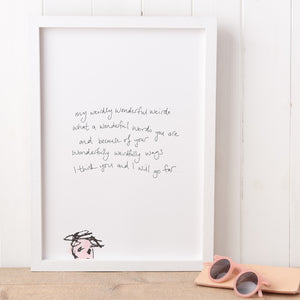 my weirdly wonderful weirdo
what a wonderful weirdo you are
and because of your
wonderfully weirdfully ways
I think you and I will go far